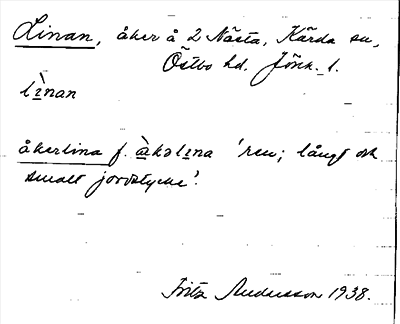 Linan, åker å 2 Nästa, Kärda sn,
Östbo hd. Jönk. l.
lìnan
åkerlina f. àkəlina 'ren; långt och
smalt jordstycke'.
Fritz Andersson 1938.